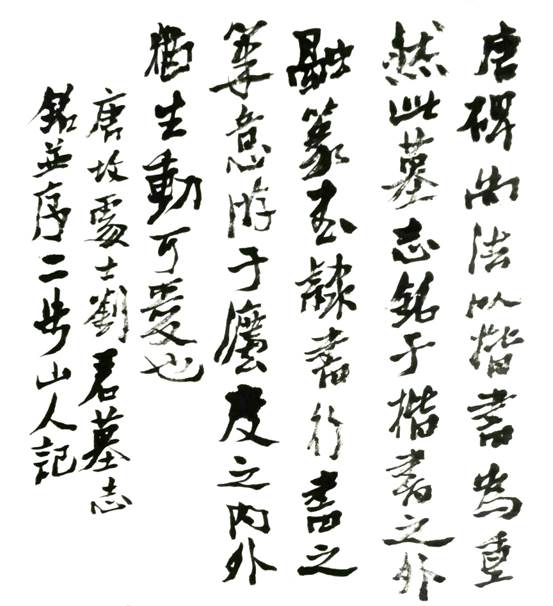 唐碑尚法以楷書為重
然此墓志銘于楷書之外
融篆书隸書行書之
筆意游于灋度之内外
猶生動可愛也
唐故處士劉君墓志
銘並序二步山人記